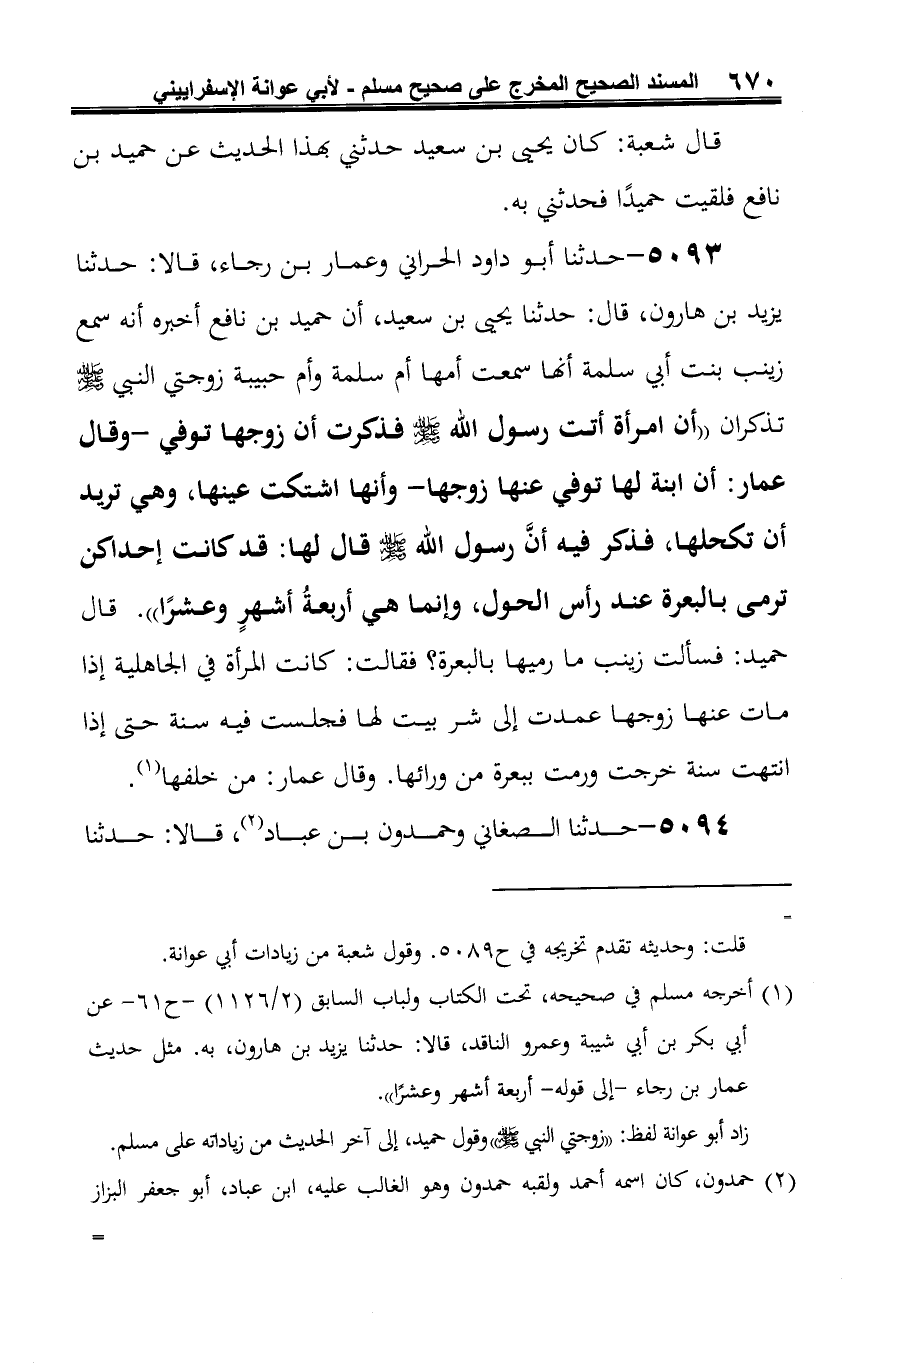 ٦٧٠ المسند الصحيح المخرج على صحيح مسلم - لأبي عوانة الإسفراييني
قال شعبة: كان يحيى بن سعيد حدثني بهذا الحديث عن حميد بن
نافع فلقيت حميدًا فحدثني به.
٥٠٩٣-حدثنا أبو داود الحراني وعمار بن رجاء، قالا: حدثنا
يزيد بن هارون، قال: حدثنا يحيى بن سعيد، أن حميد بن نافع أخبره أنه سمع
زينب بنت أبي سلمة أنها سمعت أمها أم سلمة وأم حبيبة زوجتي النبي ﷺ
تذكران ((أن امرأة أتت رسول الله ﷺ فذكرت أن زوجها توفي -وقال
عمار: أن ابنة لها توفي عنها زوجها- وأنها اشتكت عينها، وهي تريد
أن تكحلها، فذكر فيه أنَّ رسول الله ﷺ قال لها: قد كانت إحداكن
ترمى بالبعرة عند رأس الحول، وإنما هي أربعةُ أشهرٍ وعشرًا)). قال
حميد: فسألت زينب ما رميها بالبعرة؟ فقالت: كانت المرأة في الجاهلية إذا
مات عنها زوجها عمدت إلى شر بيت لها فجلست فيه سنة حتى إذا
انتهت سنة خرجت ورمت ببعرة من ورائها. وقال عمار: من خلفها(١).
٥٠٩٤-حدثنا الصغاني وحمدون بن عباد(٢)، قالا: حدثنا
=
قلت: وحديثه تقدم تخريجه في ح٥٠٨٩. وقول شعبة من زيادات أبي عوانة.
(١) أخرجه مسلم في صحيحه، تحت الكتاب ولباب السابق (١١٢٦/٢) -ح٦١- عن
أبي بكر بن أبي شيبة وعمرو الناقد، قالا: حدثنا يزيد بن هارون، به. مثل حديث
عمار بن رجاء -إلى قوله- أربعة أشهر وعشرًا)).
زاد أبو عوانة لفظ: ((زوجتي النبي ﷺ)) وقول حميد، إلى آخر الحديث من زياداته على مسلم.
(٢) حمدون، كان اسمه أحمد ولقبه حمدون وهو الغالب عليه، ابن عباد، أبو جعفر البزاز
=